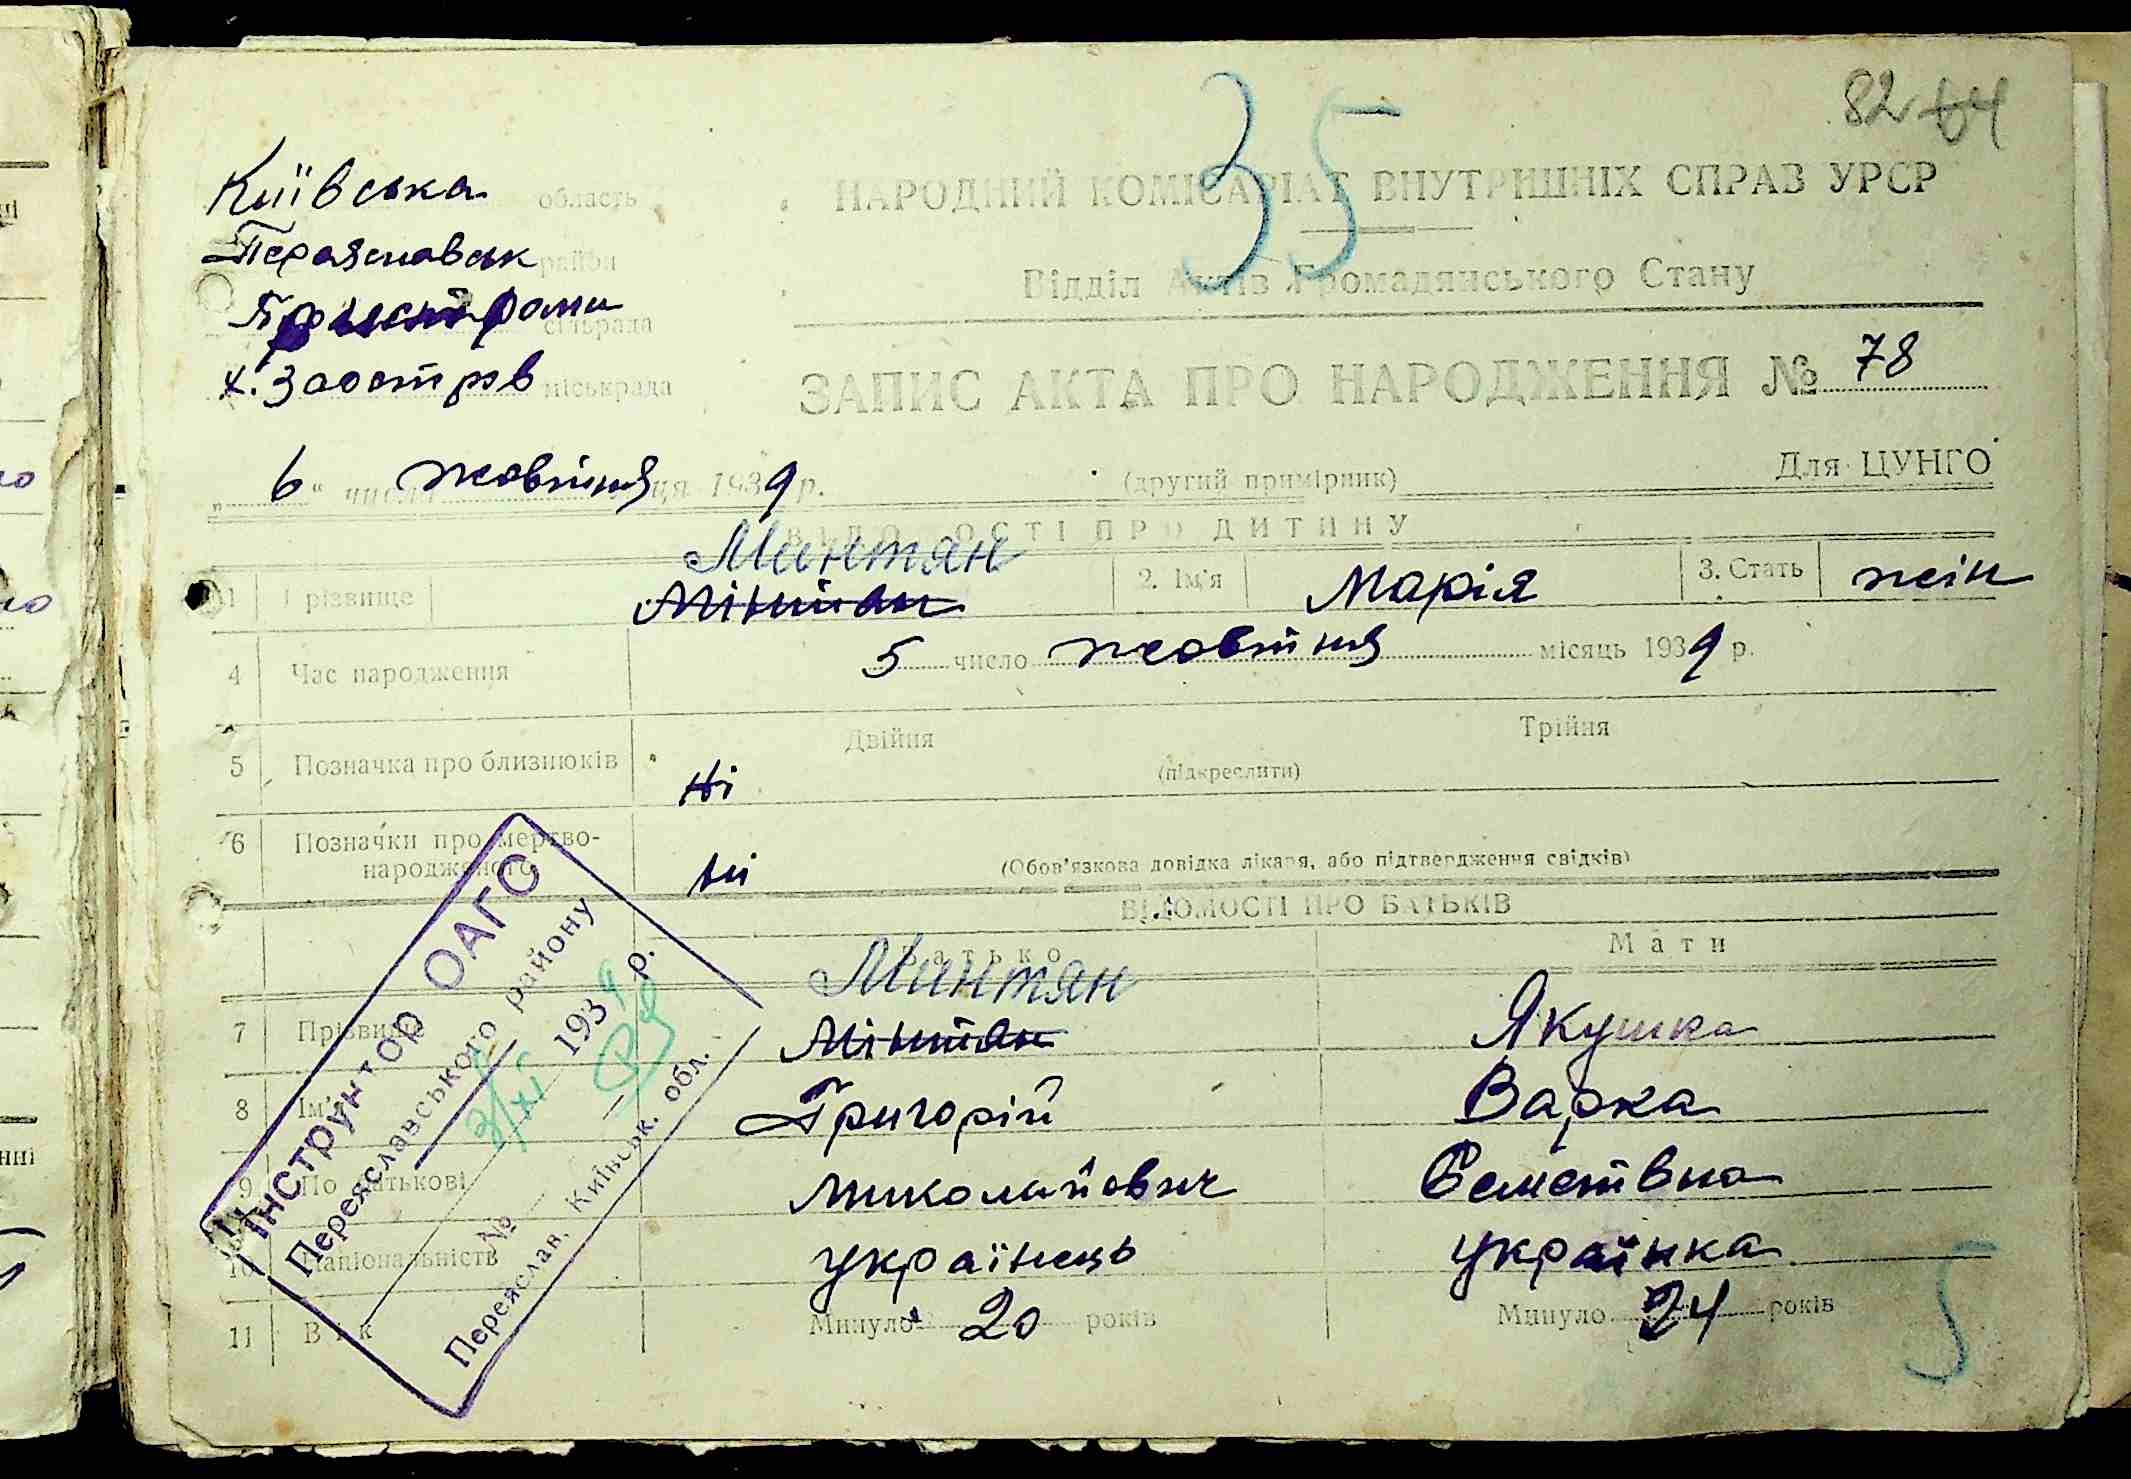 82 64
35
Київська область
НАРОДНИЙ КОМІСАРІАТ ВНУТРІШНІХ СПРАВ УРСР
район
Відділ Актів Громадянського Стану
сільрада
х. Заостров міськрада
ЗАПИС АКТА ПРО НАРОДЖЕННЯ № 78
„ 6 " числа жовтня ця 1939 р.
(другий примірник)
Для ЦУНГО
ВІДОМОСТІ ПРО ДИТИНУ
Минтян
1 Прізвище Мінтян 2. Ім'я Марія 3. Стать жін
4 Час народження 5 число жовтня місяць 1939 р.
5 Позначка про близнюків ні Двійня (підкреслити) Трійня
6 Позначки про мертво-
народженого ні (Обов'язкова довідка лікаря, або підтвердження свідків)
ВІДОМОСТІ ПРО БАТЬКІВ
Батько Мати
Минтян
7 Прізвище Мінтян Якушка
8 Ім'я Григорій Варка
9 По батькові Миколайович
10 Національність українець українка
11 Вік Минуло 20 років Минуло 24 років
Інструктор ОАГС
Переяславського району
3/XI 1939 р.
№
Переяслав, Київськ. обл.
5